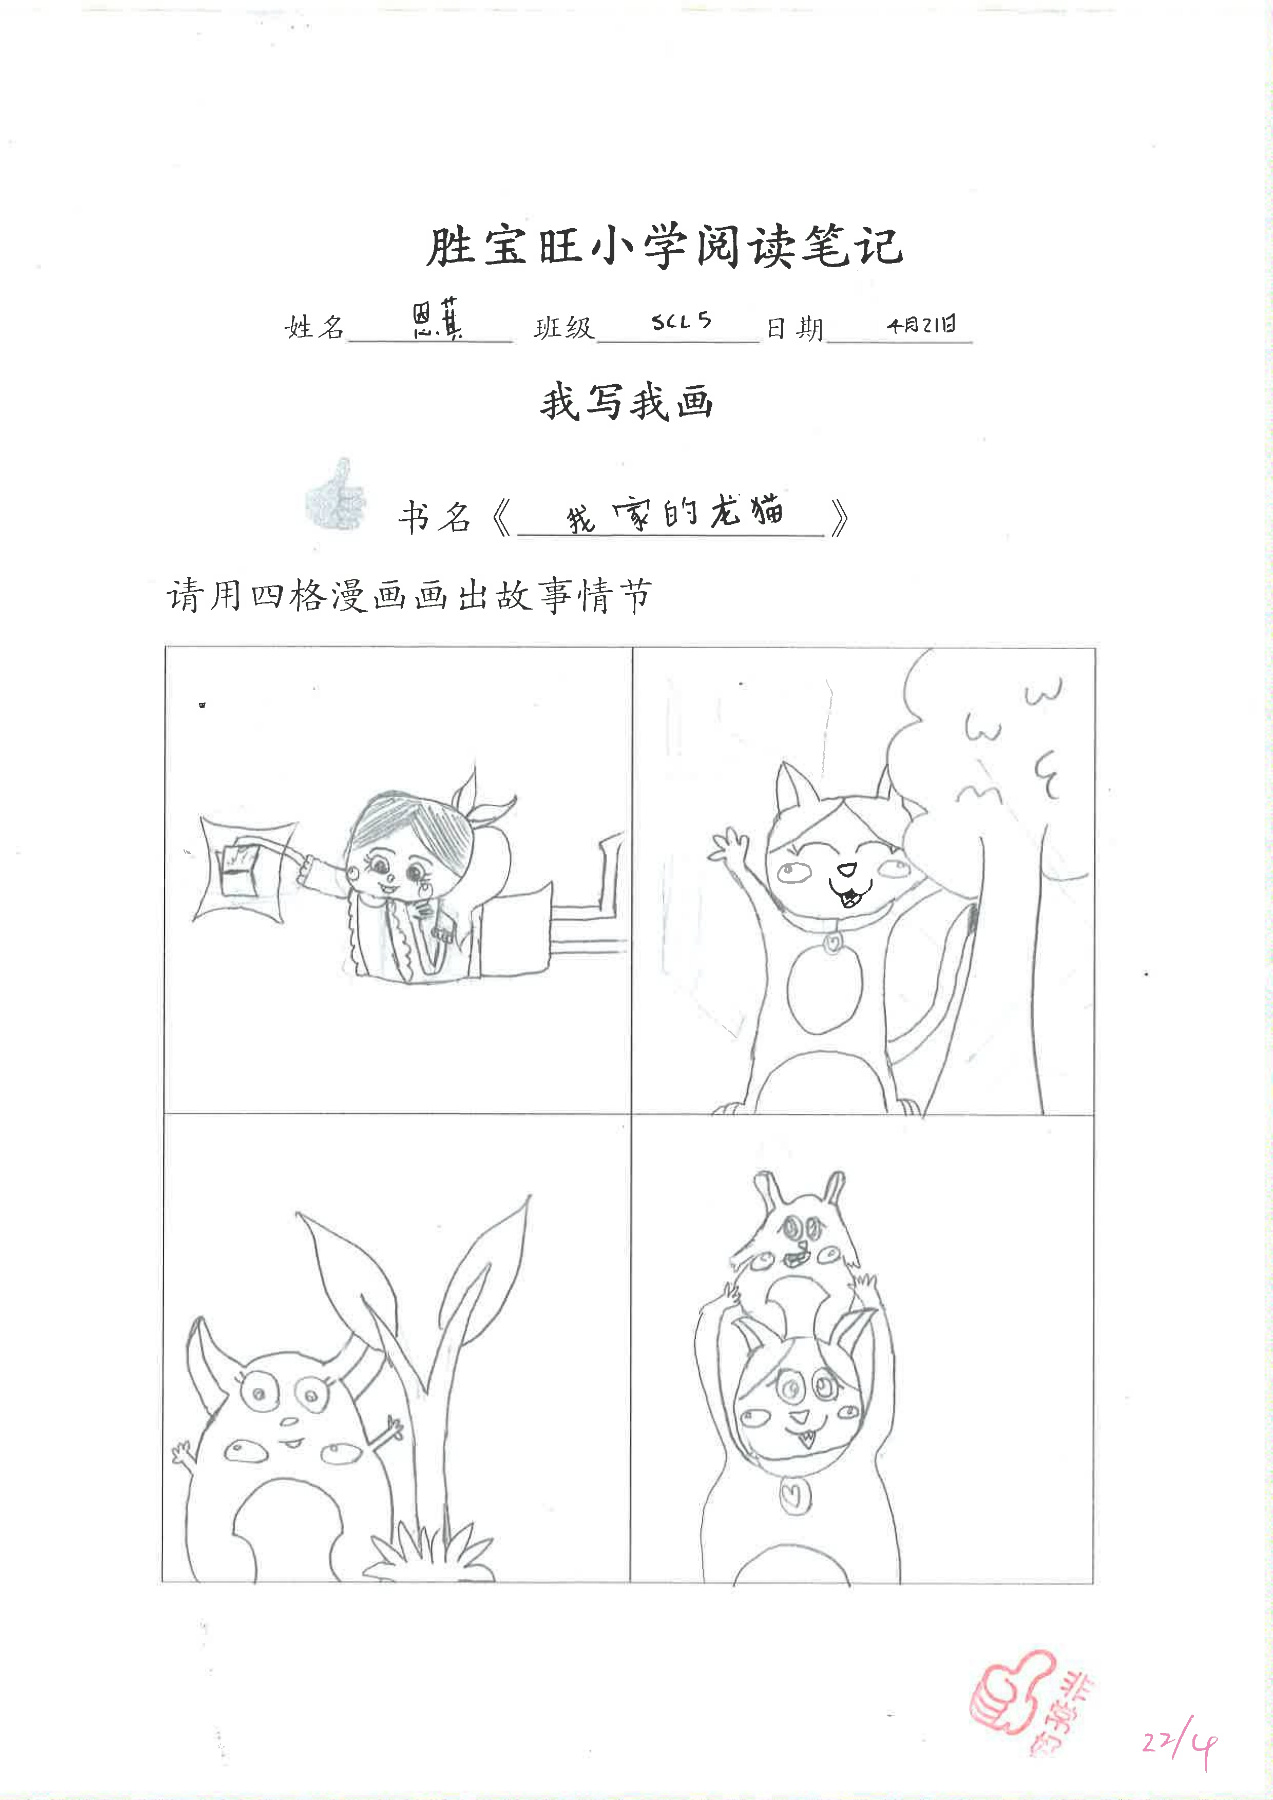 胜宝旺小学阅读笔记
姓名 恩萁 班级 SCL5 日期 4月21日
我写我画
书名《 我家的龙猫 》
请用四格漫画画出故事情节
22/4